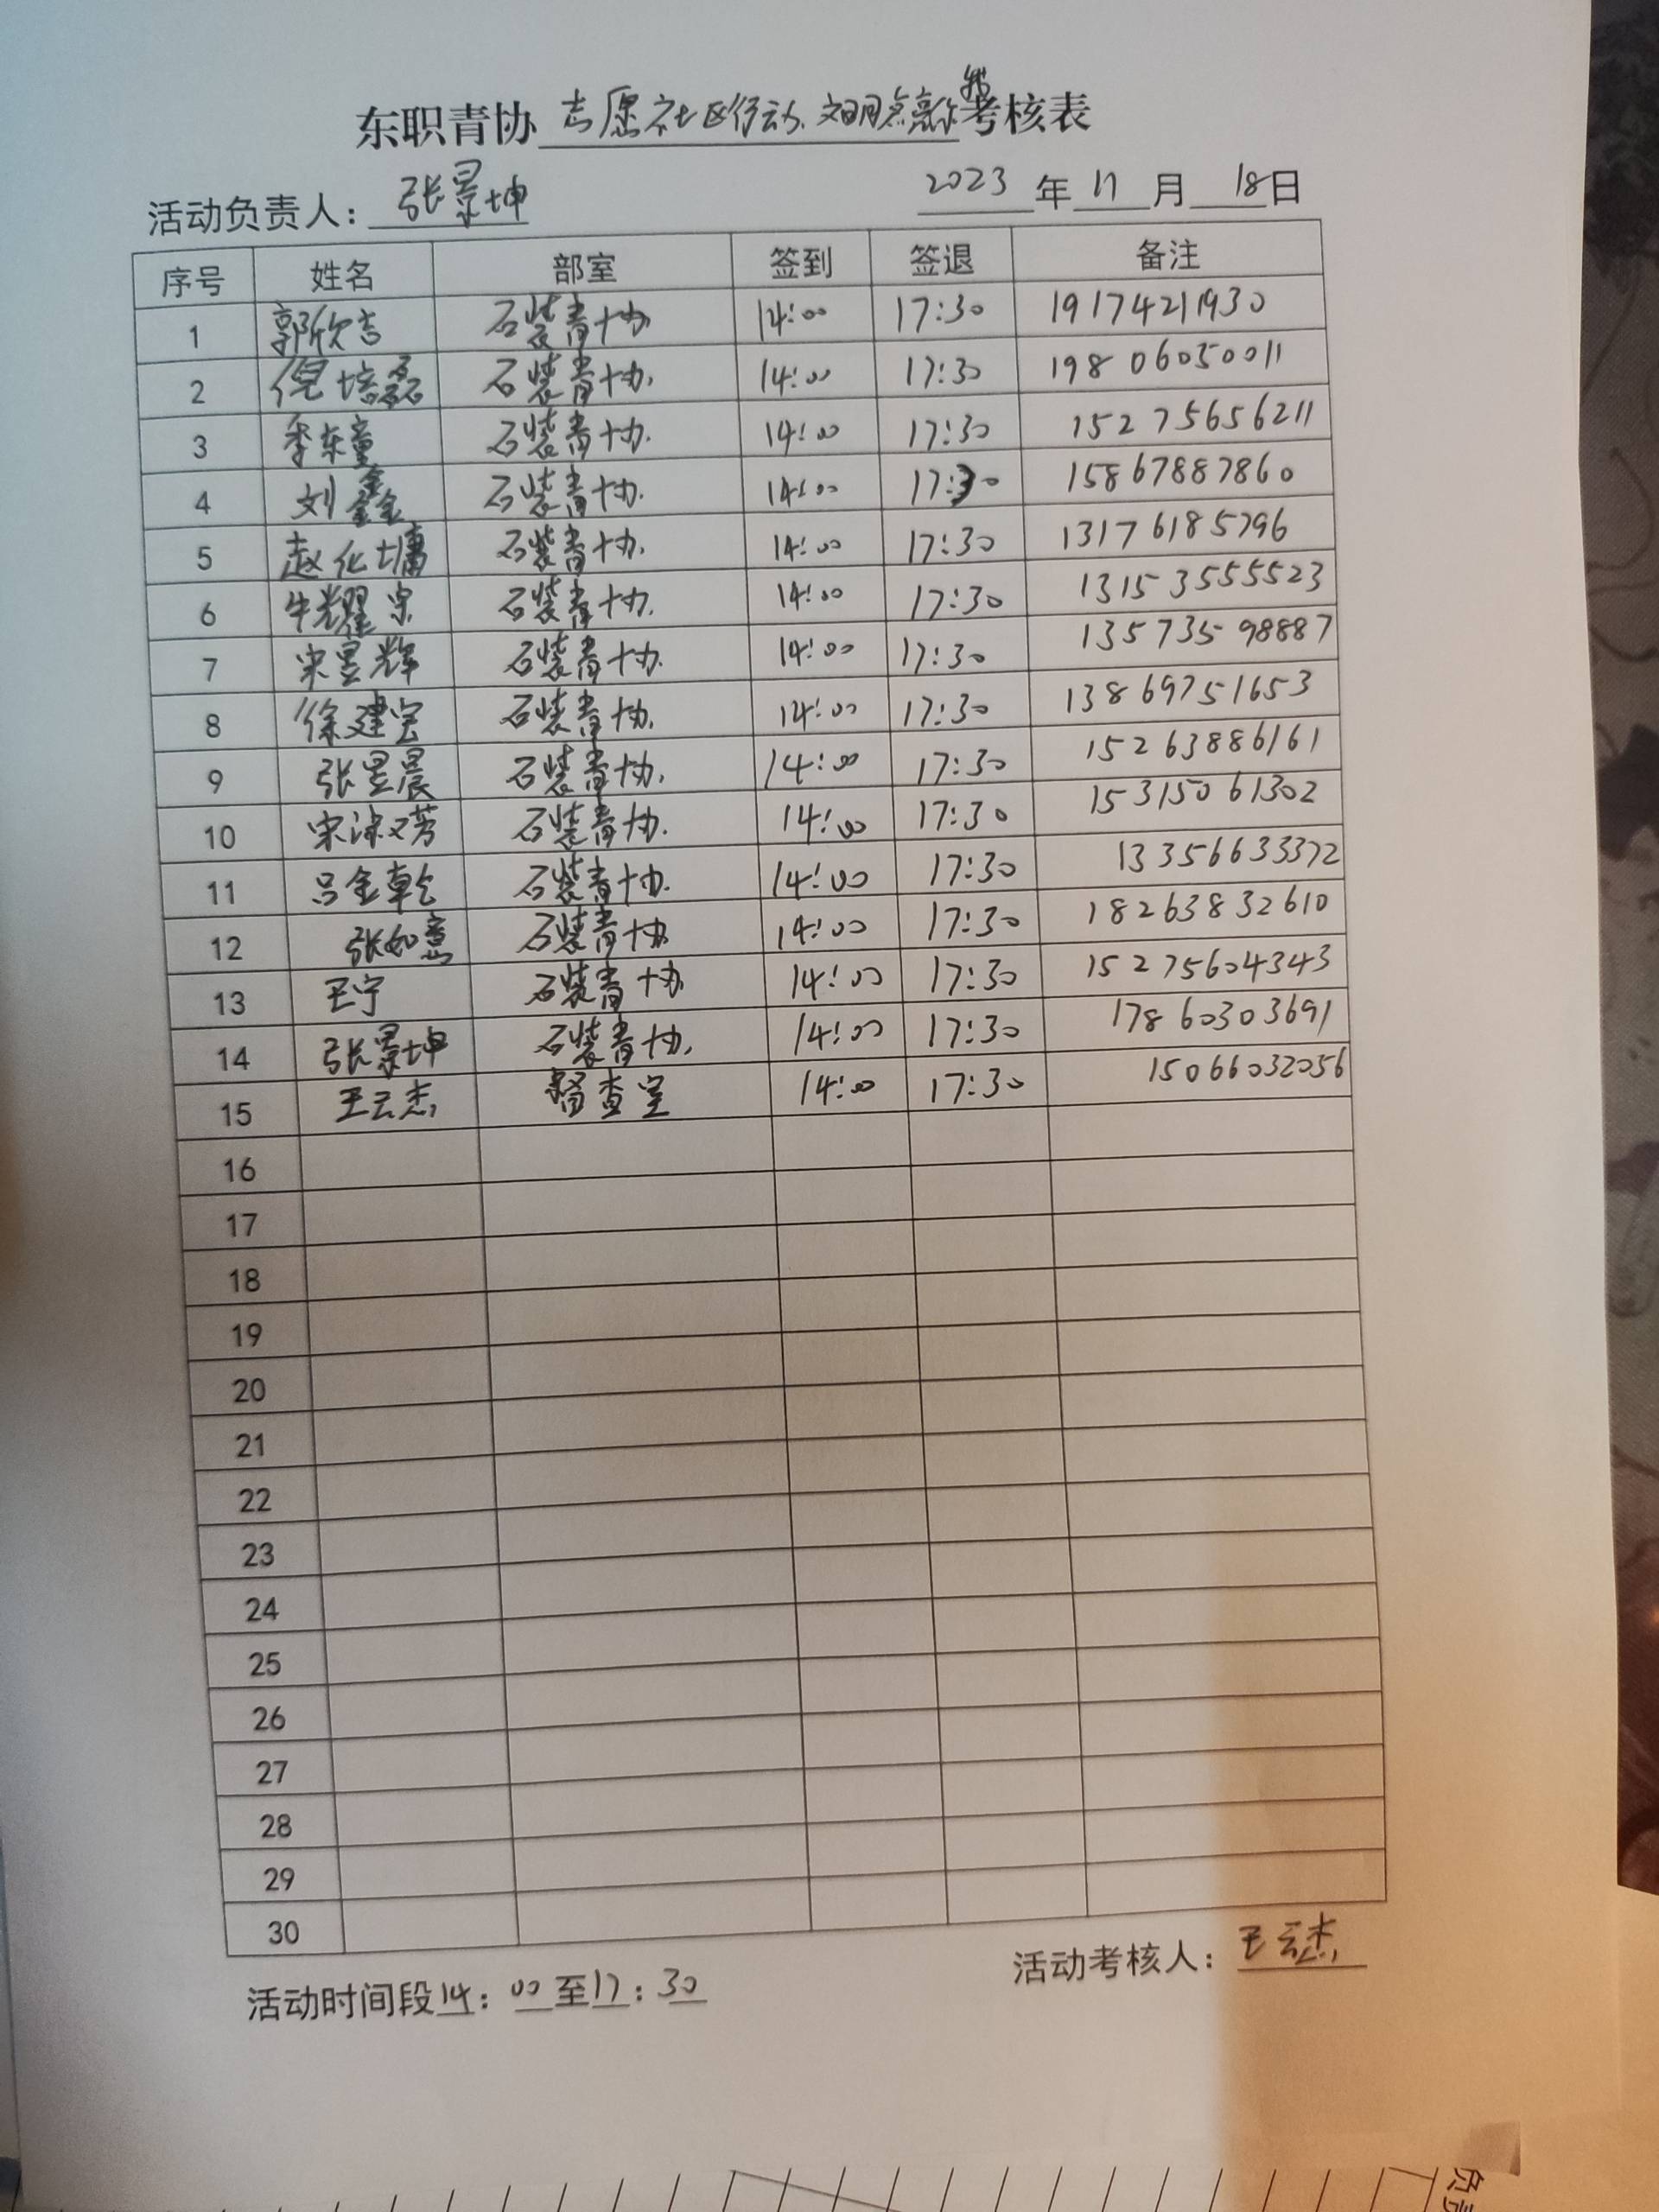 东职青协志愿社区行动.文明点亮你我考核表
活动负责人：张景坤 2023年11月18日
序号 姓名 部室 签到 签退 备注
1 郭欣吉 石装青协 14:00 17:30 19174211930
2 倪培磊 石装青协. 14:00 17:30 19806050011
3 季东童 石装青协. 14:00 17:30 15275656211
4 刘鑫 石装青协. 14:00 17:30 15867887860
5 赵化墉 石装青协. 14:00 17:30 13176185796
6 牛耀宗 石装青协. 14:00 17:30 13153555523
7 宋昱辉 石装青协. 14:00 17:30 13573598887
8 徐建宝 石装青协. 14:00 17:30 13869751653
9 张昱晨 石装青协. 14:00 17:30 15263886161
10 宋 石装青协. 14:00 17:30 15315061302
11 吕金乾 石装青协. 14:00 17:30 13356633372
12 张如意 石装青协 14:00 17:30 18263832610
13 王宁 石装青协 14:00 17:30 15275604343
14 张景坤 石装青协. 14:00 17:30 17860303691
15 王云杰 督查室 14:00 17:30 15066032056
16
17
18
19
20
21
22
23
24
25
26
27
28
29
30
活动时间段14：00至17：30 活动考核人：王云杰